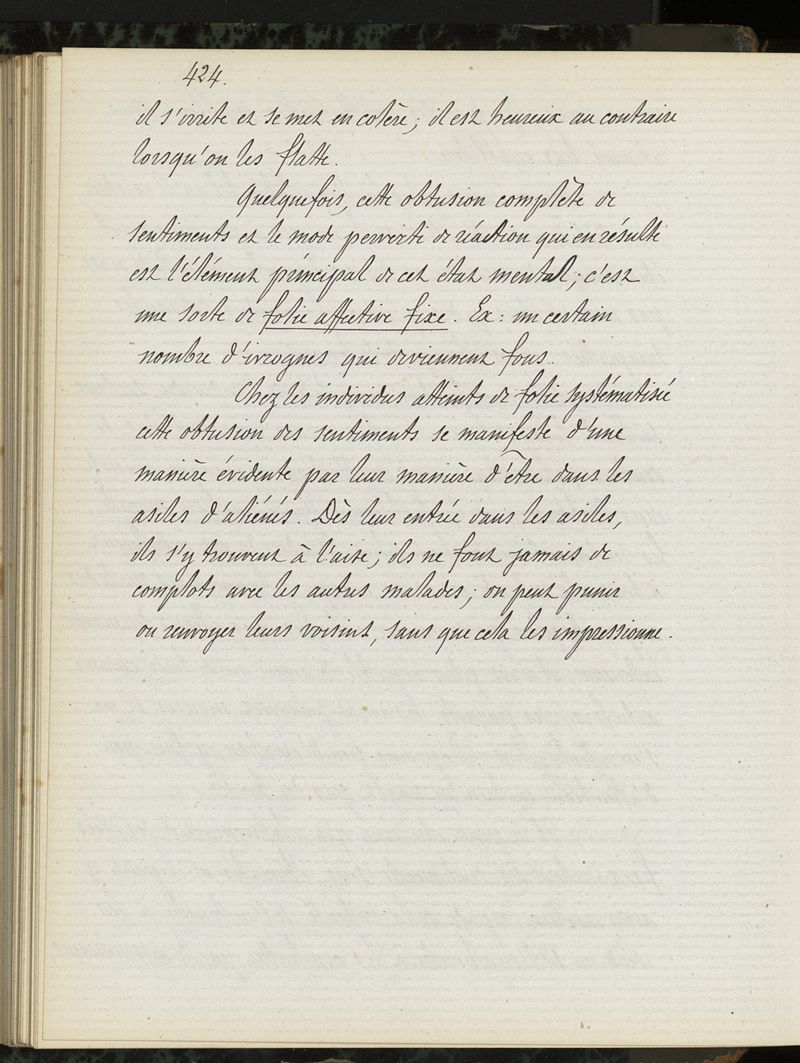 424.
il s'irrite et se met en colère; il est heureux au contraire
lorsqu'on les flatte.
Quelquefois, cette obtusion complète de
sentiments et le mode perverti de réaction qui en résulte
est l'élément principal de cet état mental; c'est
une sorte de folie affective fixe. Ex: un certain
nombre d'ivrognes qui deviennent fous.
Chez les individus atteints de folie systématisée
cette obtusion des sentiments se manifeste d'une
manière évidente par leur manière d'être dans les
asiles d'aliénés. Dès leur entrée dans les asiles,
ils s'y trouvent à l'aise; ils ne font jamais de
complots avec les autres malades; on peut punir
ou renvoyer leurs voisins, sans que cela les impressionne.